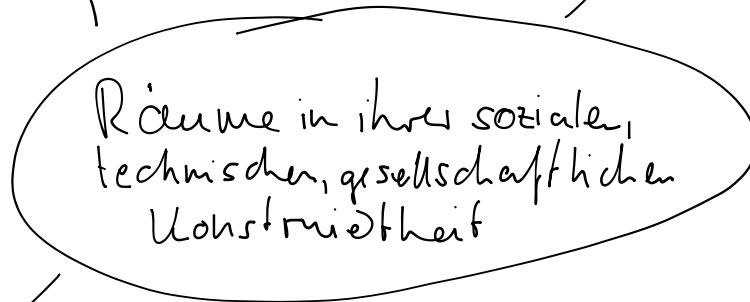 Räume in ihrer sozialen,
technischen, gesellschaftlichen
Konstruiertheit